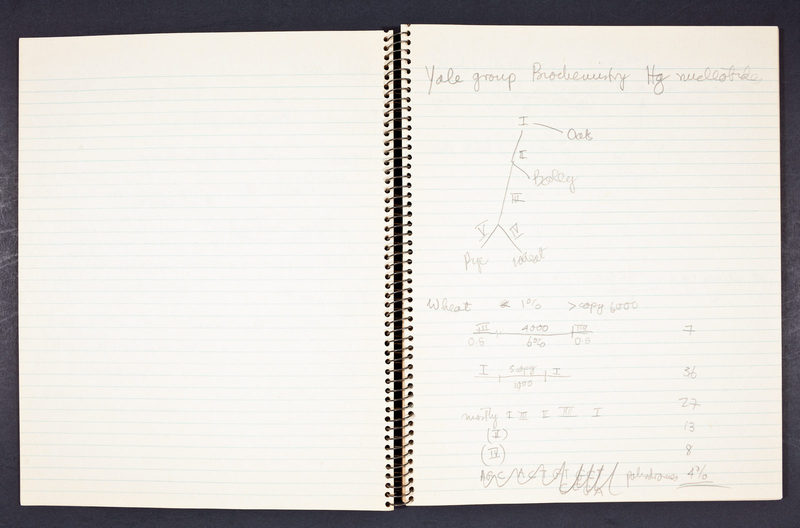 Yale group Biochemistry Hg nucleotide
I
Oats
II
Barley
III
V IV
Rye Wheat
Wheat 1% >copy 6000
III 4000 III 7
0.5 6% 0.5
I s copy I 36
1000
27
mostly I II I III I
(II) 13
(IV) 8
palindromes 4%